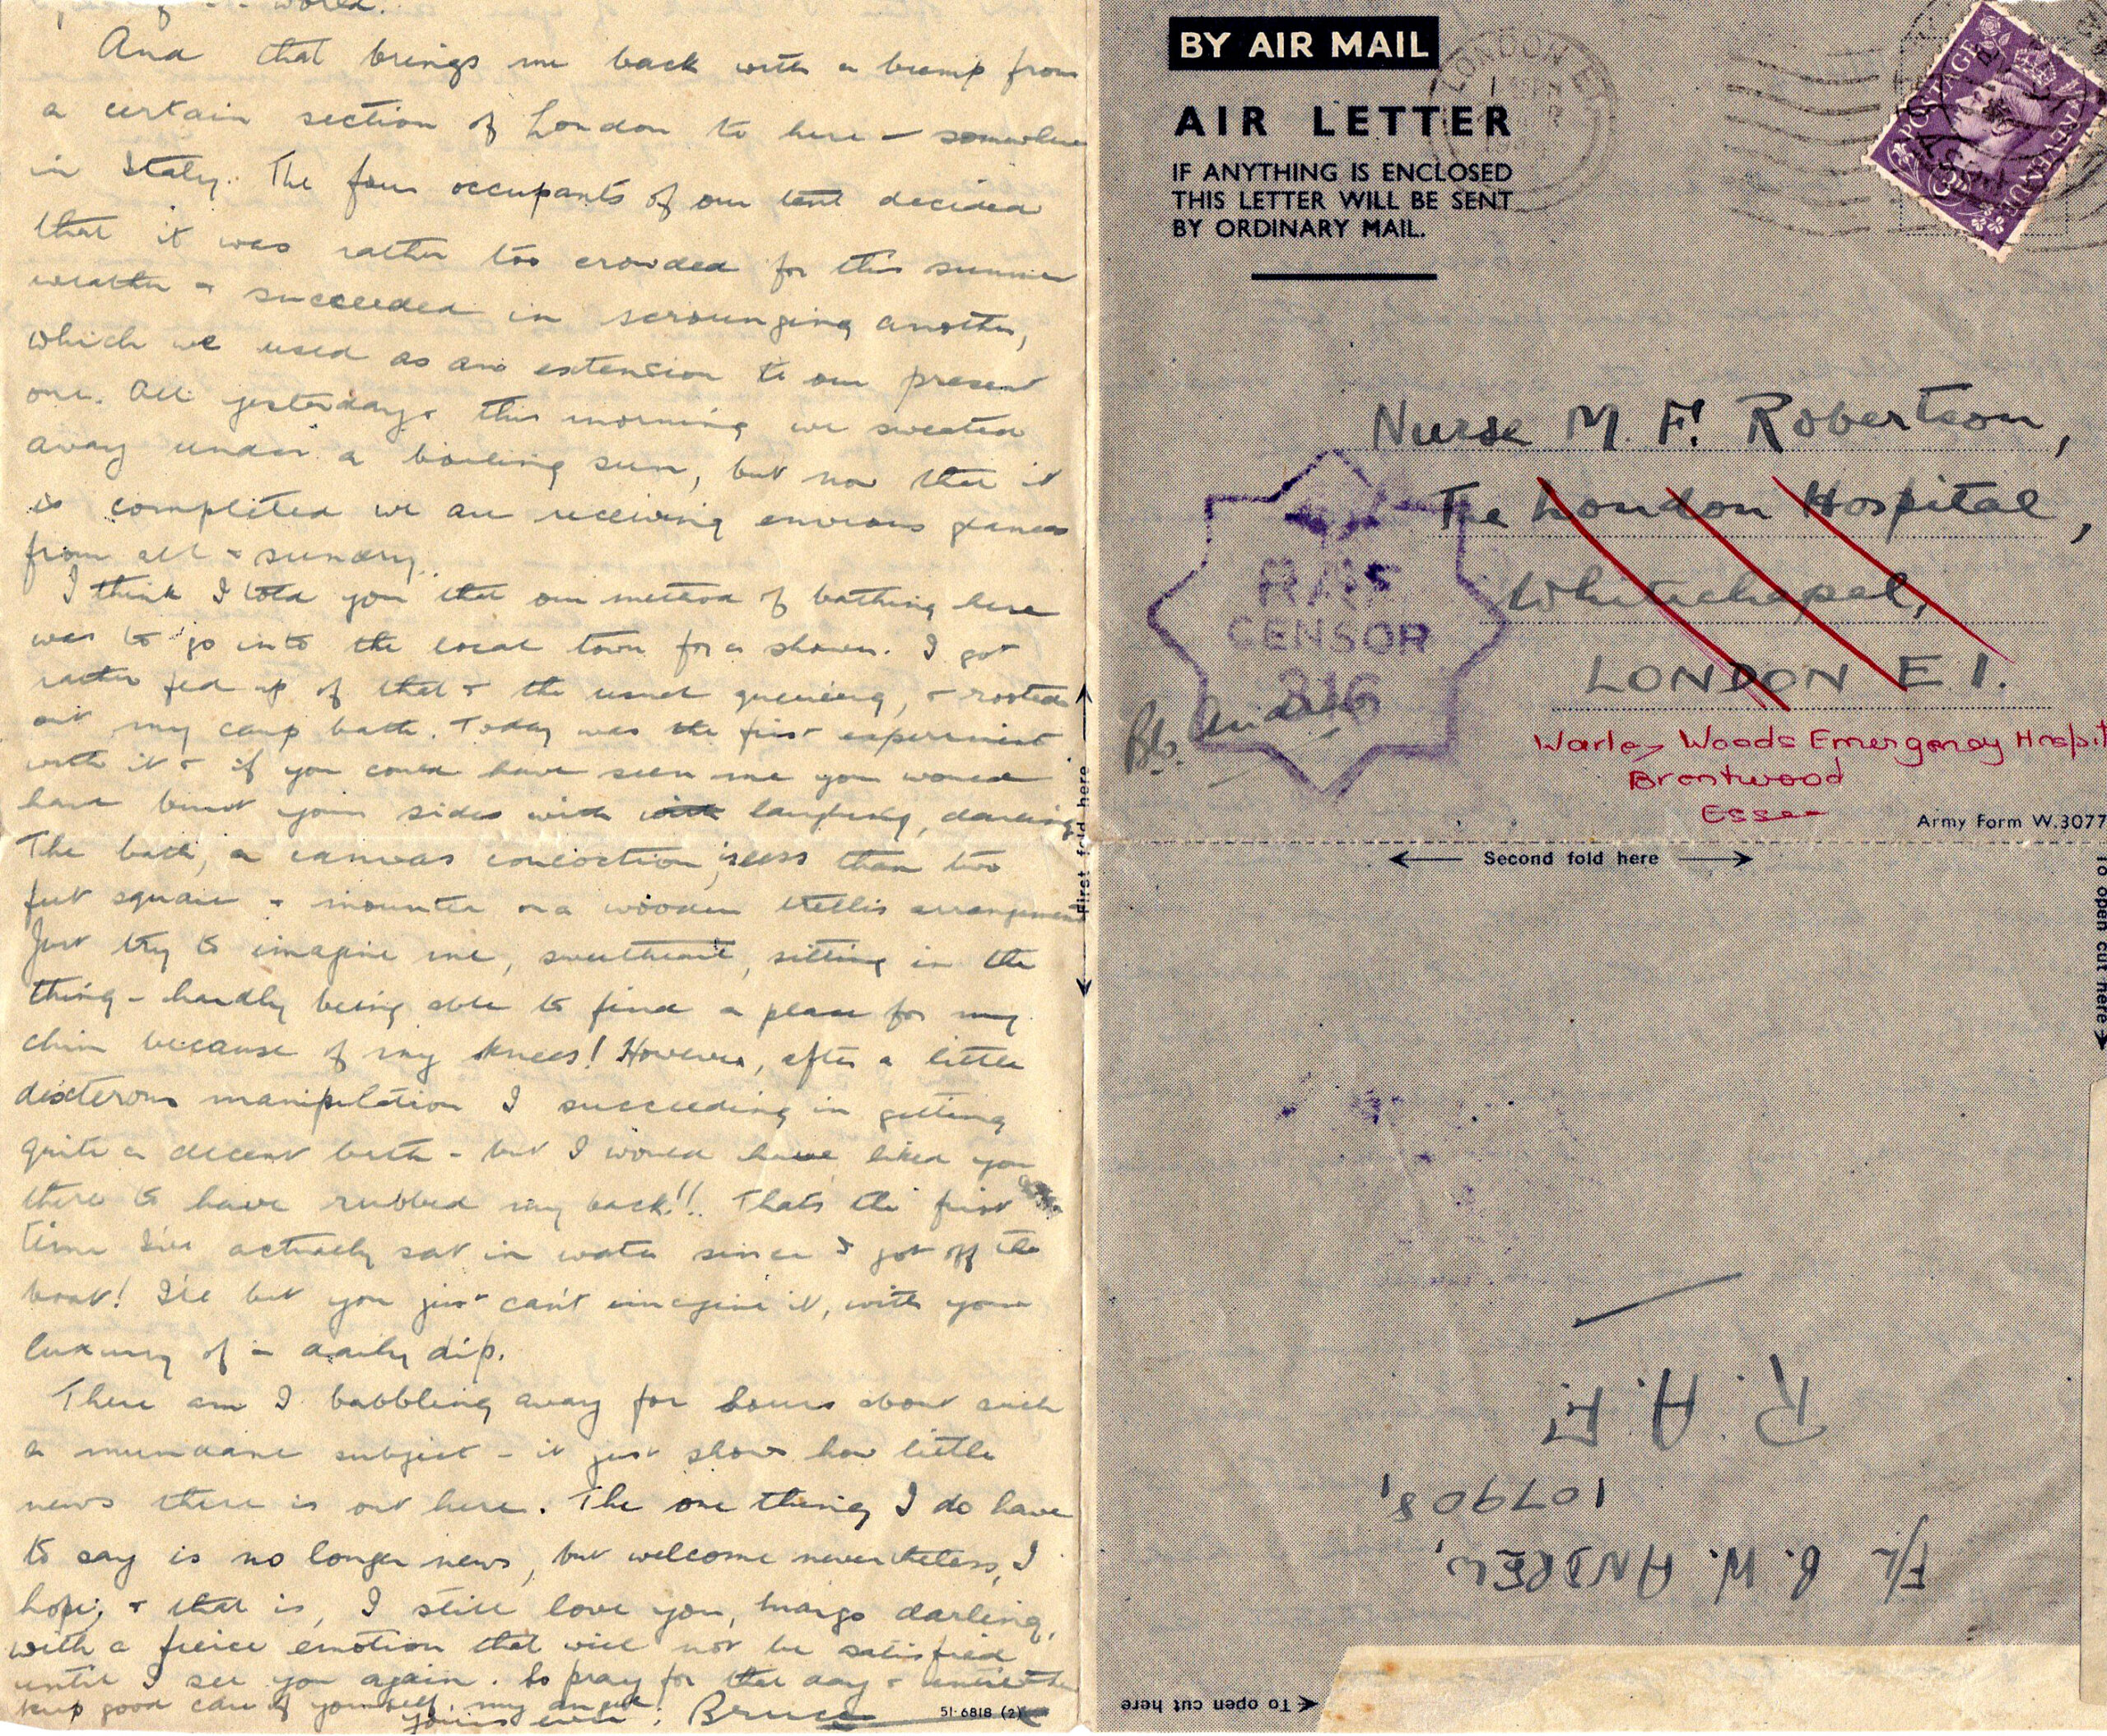 world.
And that brings me back with a bump from
a certain section of London to here - somewhere
in Italy. The four occupants of our tent decided
that it was rather too crowded for this summer
weather & succeeded in scrounging another,
which we used as an extension to our present
one. All yesterday & this morning we sweated
away under a boiling sun, but now that it
is completed we are receiving envious glances
from all & sundry.
I think I told you that our method of bathing here
was to go into the local town for a shower. I got
rather fed up of that & the usual queueing, & rooted
out my camp bath. Today was the first experiment
with it & if you could have seen me you would
have burst your sides with with laughing, darling
The bath, a canvas concoction, is less than two
feet square & mounted on a wooden trellis arrangement
Just try to imagine me, sweetheart, sitting in the
thing - hardly being able to find a place for my
chin because of my knees! However, after a little
dexterous manipulation I succeeding in getting
quite a decent bath - but I would have liked you
there to have rubbed my back!! Thats the first
time I've actually sat in water since I got off the
boat! I'll bet you just can't imagine it, with your
luxury of a daily dip.
There am I babbling away for hours about such
a mundane subject - it just shows how little
news there is out here. The one thing I do have
to say is no longer news, but welcome nevertheless, I
hope, & that is, I still love you, Margo darling,
with a fierce emotion that will not be satisfied
until I see you again. So pray for that day & until then
keep good care of yourself, my angel!
Yours ever, Bruce
51-6818 (2)
First fold here
BY AIR MAIL
AIR LETTER
IF ANYTHING IS ENCLOSED
THIS LETTER WILL BE SENT
BY ORDINARY MAIL.
LONDON E1
POSTAGE
Nurse M. F. Robertson,
The London Hospital,
Whitechapel,
LONDON E 1.
RAF
CENSOR
216
Warley Woods Emergency Hospit
Brentwood
Essex
Army Form W.3077
Second fold here
To open cut here
R.A.F.
107908,
F/L B. W. ANDREW,
To open cut here